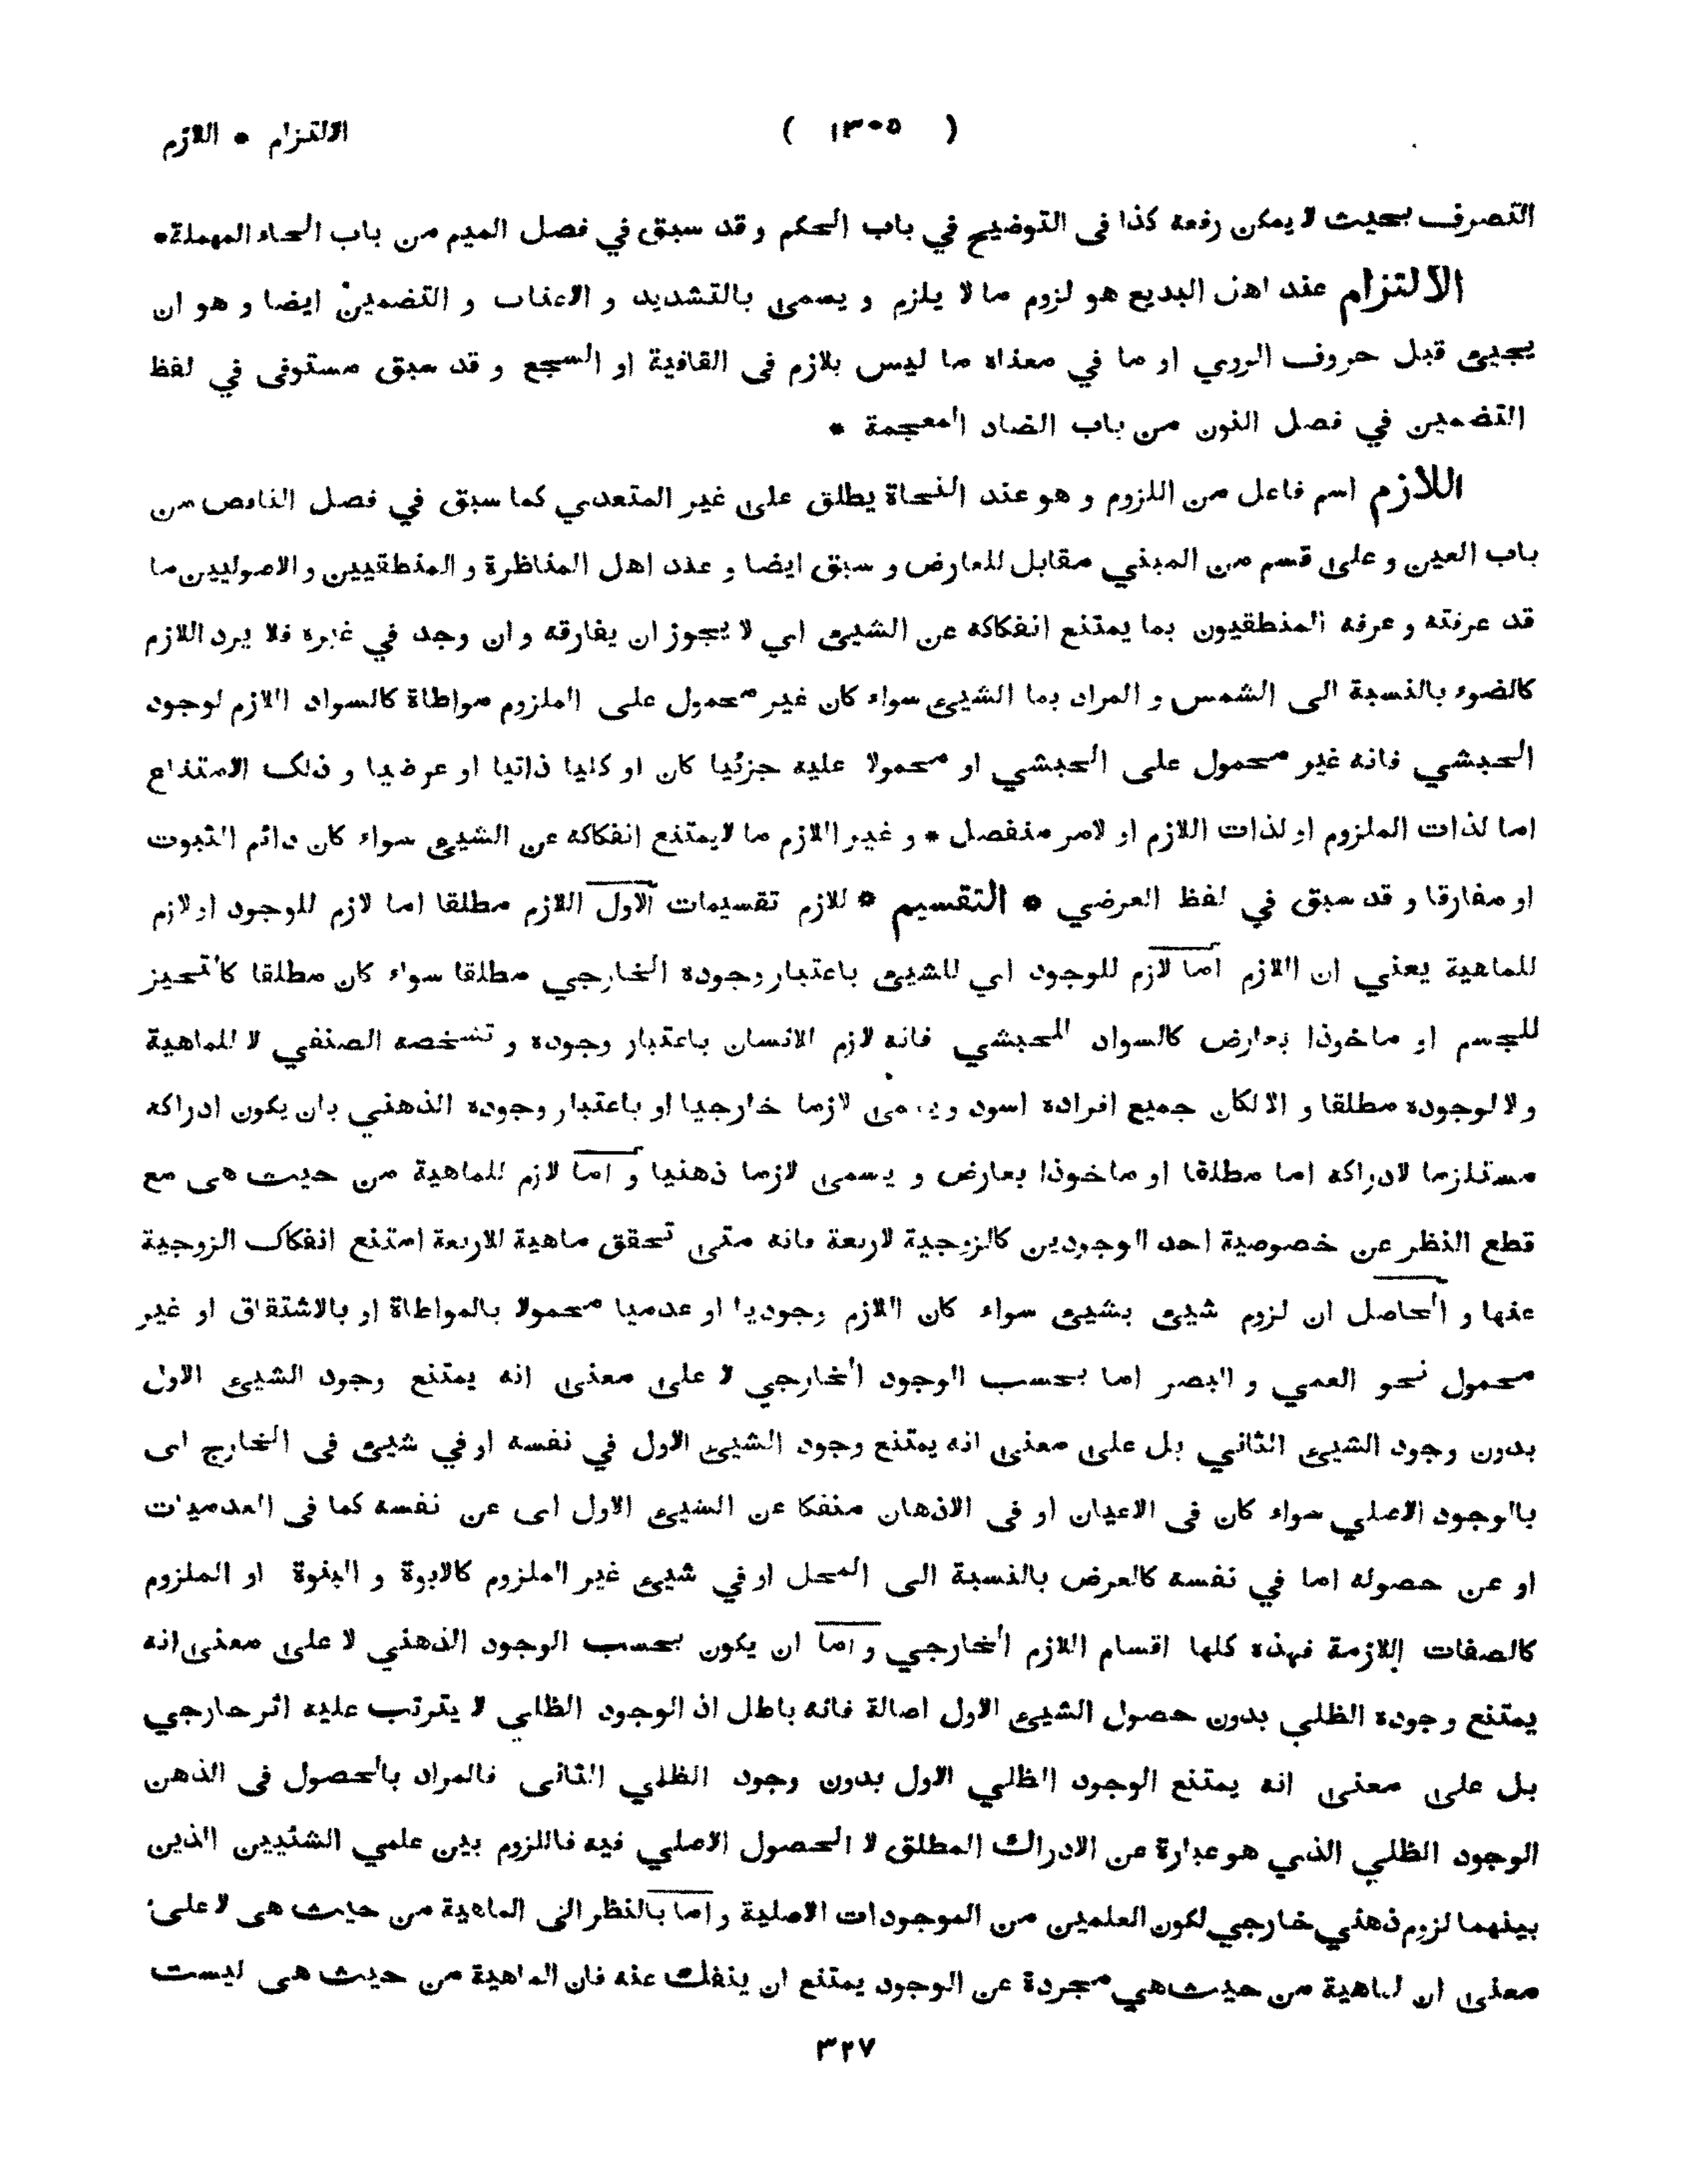 الالتزام * اللازم ( ١٣٠٥ )
التصرف بحيث لا يمكن رفعه كذا فى التوضيح في باب الحكم و قد سبق في فصل الميم من باب الحاء المهملة *
الالتزام عند اهل البديع هو لزوم ما لا يلزم و يسمى بالتشديد و الاعنات و التضمين ايضا و هو ان
يجيئ قبل حروف الروي او ما في معناه ما ليس بلازم فى القافية او السجع و قد سبق مستوفى في لفظ
التضمين في فصل النون من باب الضاد المعجمة *
اللازم اسم فاعل من اللزوم و هو عند النحاة يطلق على غير المتعدي كما سبق في فصل الناقص من
باب العين و على قسم من المبني مقابل للعارض و سبق ايضا و عند اهل المناظرة و المنطقيين و الاصوليين ما
قد عرفته و عرفه المنطقيون بما يمتنع انفكاكه عن الشيئ اي لا يجوز ان يفارقه و ان وجد في غيره فلا يرد اللازم
كالضوء بالنسبة الى الشمس و المراد بما الشيئ سواء كان غير محمول على الملزوم مواطاة كالسواد اللازم لوجود
الحبشي فانه غير محمول على الحبشي او محمولا عليه جزئيا كان او كليا ذاتيا او عرضيا و ذلك الامتناع
اما لذات الملزوم او لذات اللازم او لامر منفصل * و غير اللازم ما لا يمتنع انفكاكه عن الشيئ سواء كان دائم الثبوت
او مفارقا و قد سبق في لفظ العرضي * التقسيم * للازم تقسيمات الاول اللازم مطلقا اما لازم للوجود او لازم
للماهية يعني ان اللازم اما لازم للوجود اي للشيئ باعتبار وجوده الخارجي مطلقا سواء كان مطلقا كالتحيز
للجسم او ماخوذا بعارض كالسواد للحبشي فانه لازم الانسان باعتبار وجوده و تشخصه الصنفي لا للماهية
و لا لوجوده مطلقا و الا لكان جميع افراده اسود و يسمى لازما خارجيا او باعتبار وجوده الذهني بان يكون ادراكه
مستلزما لادراكه اما مطلقا او ماخوذا بعارض و يسمى لازما ذهنيا و اما لازم للماهية من حيث هى مع
قطع النظر عن خصوصية احد الوجودين كالزوجية لاربعة فانه متى تحقق ماهية للاربعة امتنع انفكاك الزوجية
عنها و الحاصل ان لزوم شيئ بشيئ سواء كان اللازم وجوديا او عدميا محمولا بالمواطاة او بالاشتقاق او غير
محمول نحو العمي و البصر اما بحسب الوجود الخارجي لا على معنى انه يمتنع وجود الشيئ الاول
بدون وجود الشيئ الثاني بل على معنى انه يمتنع وجود الشيئ الاول في نفسه او في شيئ فى الخارج اى
بالوجود الاصلي سواء كان فى الاعيان او فى الاذهان منفكا عن الشيئ الاول اى عن نفسه كما فى العدميات
او عن حصوله اما في نفسه كالعرض بالنسبة الى المحل او في شيئ غير الملزوم كالابوة و البنوة او الملزوم
كالصفات اللازمة فهذه كلها اقسام اللازم الخارجي و اما ان يكون بحسب الوجود الذهني لا على معنى انه
يمتنع وجوده الظلي بدون حصول الشيئ الاول اصالة فانه باطل اذ الوجود الظلي لا يترتب عليه اثر خارجي
بل على معنى انه يمتنع الوجود الظلي الاول بدون وجود الظلي الثانى فالمراد بالحصول فى الذهن
الوجود الظلي الذي هو عبارة عن الادراك المطلق لا الحصول الاصلي فيه فاللزوم بين علمي الشئيين الذين
بينهما لزوم ذهني خارجي لكون العلمين من الموجودات الاصلية و اما بالنظر الى الماهية من حيث هى لا على
معنى ان لماهية من حيث هي مجردة عن الوجود يمتنع ان ينفك عنه فان الماهية من حيث هى ليست
٣٢٧